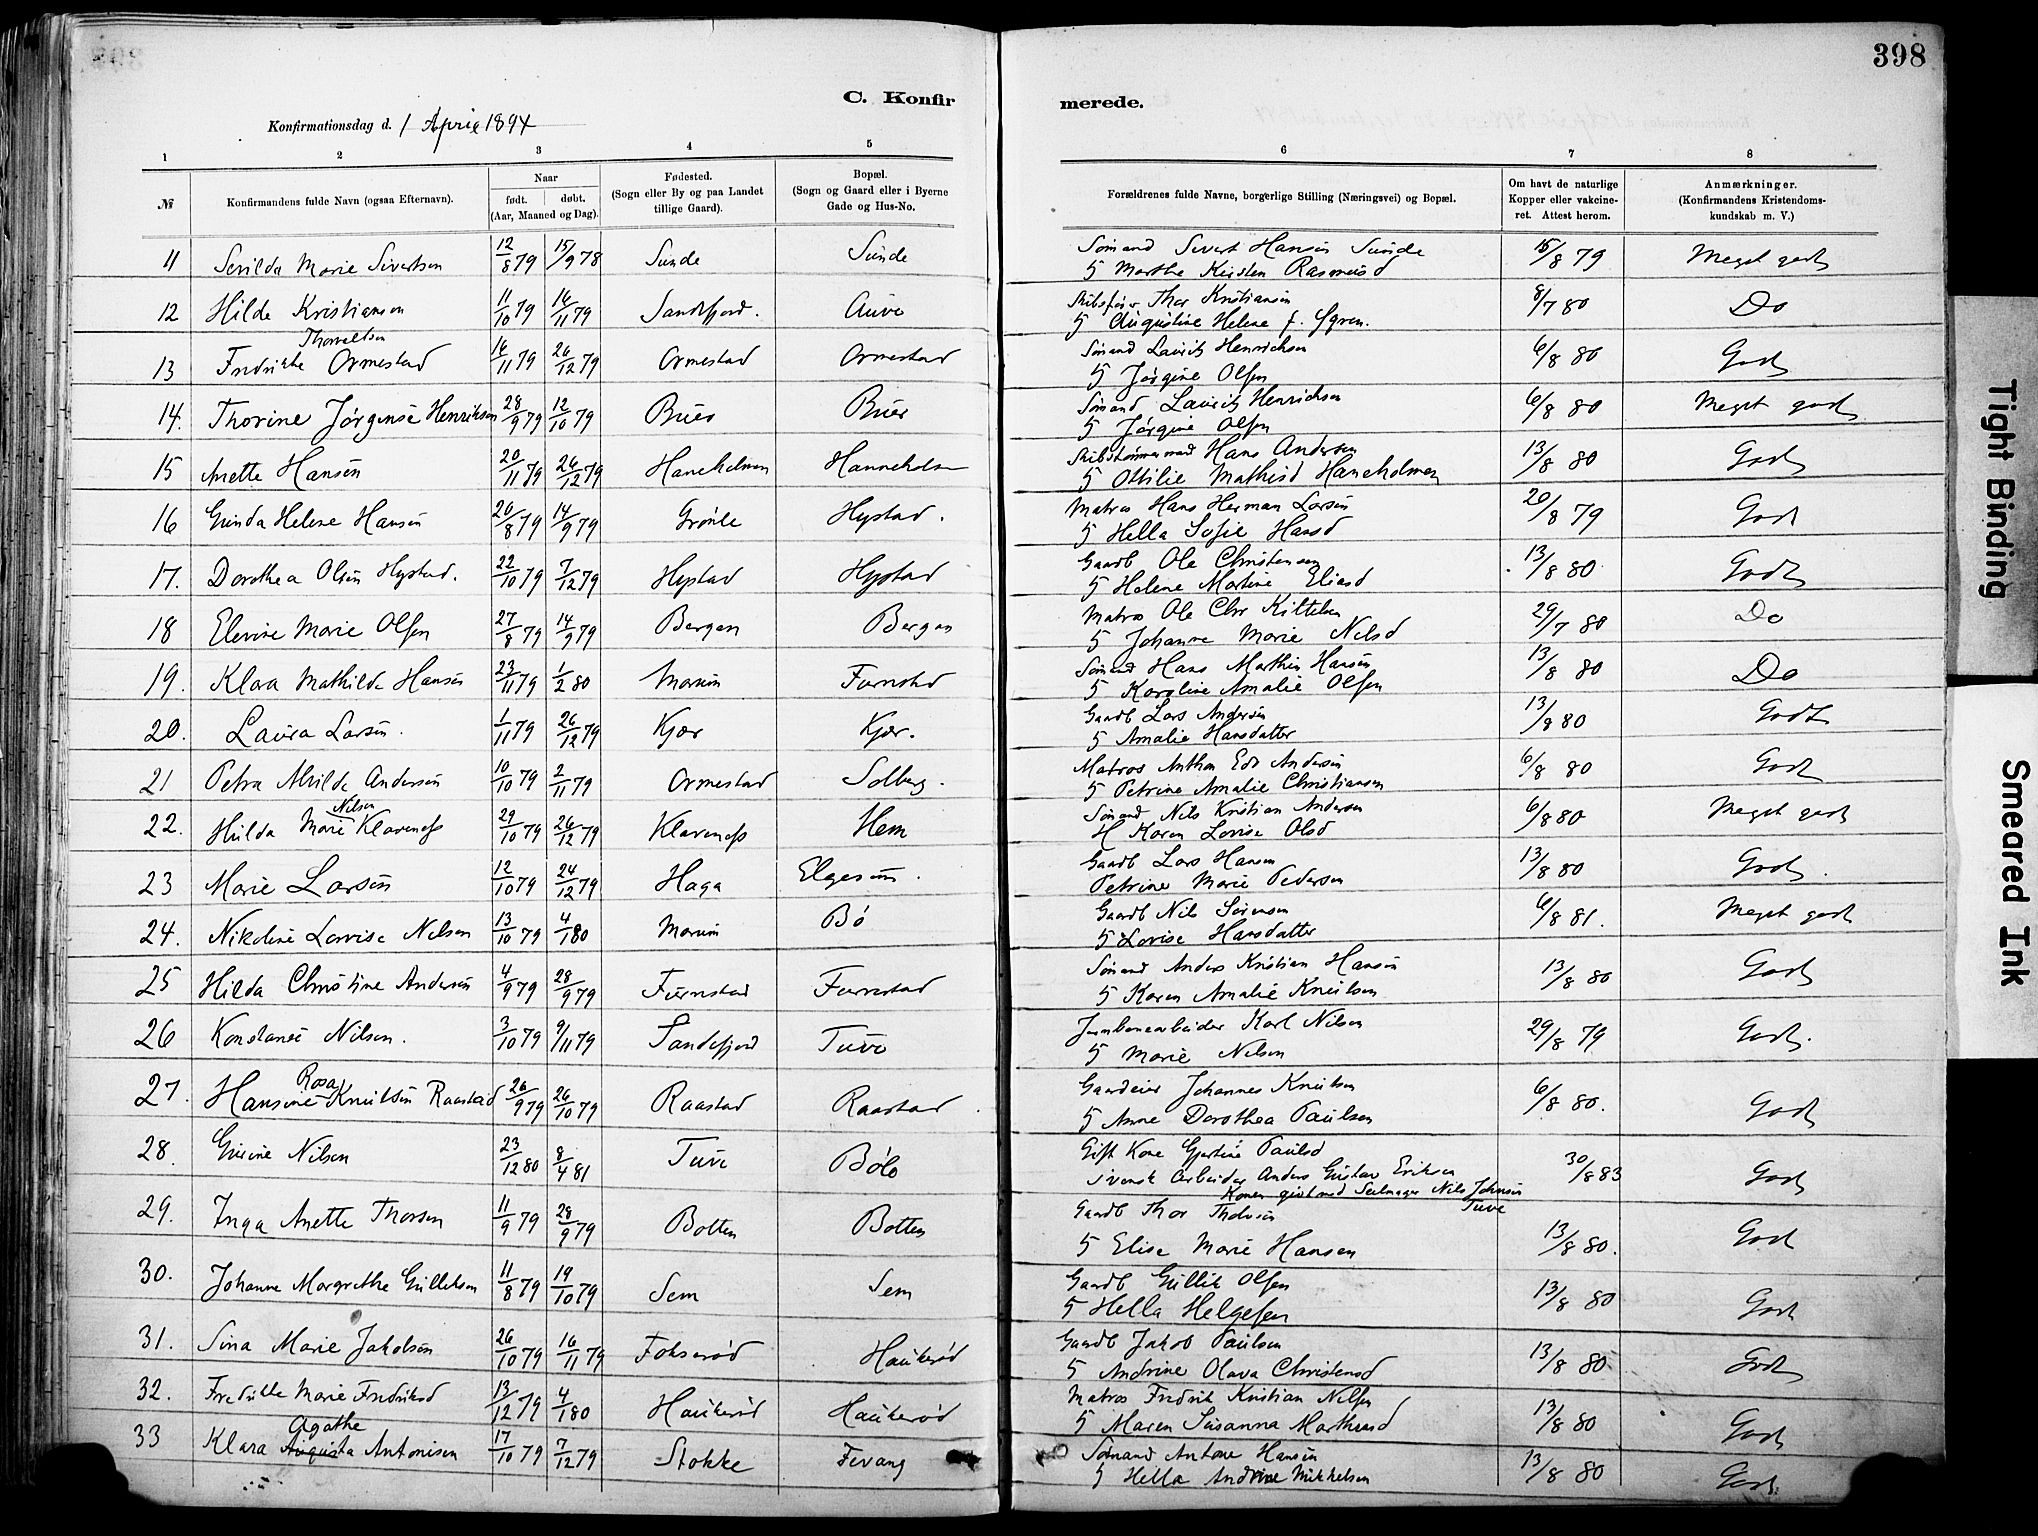 398
C. Konfirmerede.
Konfirmationsdag d. 1 April 1894
1 2 3 4 5 6 7 8
№ Konfirmandens fulde Navn (ogsaa Efternavn). Naar født. døbt. (Aar, Maaned og Dag). Fødested. (Sogn eller By og paa Landet tillige Gaard). Bopæl. (Sogn og Gaard eller i Byerne Gade og Hus-No. Forældrenes fulde Navne, borgerlige Stilling (Næringsvei) og Bopæl. Om havt de naturlige Kopper eller vakcineret. Attest herom. Anmærkninger. (Konfirmandens Kristendomskundskab m. V.)
11 Serilda Marie Sivertsen 12/8 79 15/9 78 Sunde Sunde Sømand Sivert Hansen Sunde 15/8 79 Meget godt
5 Marthe Kirsten Rasmusd
12 Hilde Kristiansen 11/10 79 16/11 79 Sandefjord. Auve Skibsfører Thor Kristiansen 8/7 80 Do
5 Augustine Helene f. Ygren.
Thorvaldsen
13 Fredrikke Ormestad 16/11 79 26/12 79 Ormestad Ormestad Sømand Lauritz Henrichsen 6/8 80 Godt
5 Jørgine Olsen
14. Thorine Jørgense Henriksen 28/9 79 12/10 79 Buer Buer Sømand Lauritz Henrichsen 6/8 80 Meget godt
5 Jørgine Olsen
15 Anette Hansen 20/11 79 26/12 79 Haneholmen Hanneholm Skibstømmermand Hans Andersen 13/8 80 Godt
5 Ottilie Mathisd Haneholmen
16 Gunda Helene Hansen 20/8 79 14/9 79 Grønli Hystad. Matros Hans Herman Larsen 20/8 79 Godt
5 Hella Sofie Hansd
17. Dorothea Olsen Hystad. 22/10 79 7/12 79 Hystad Hystad Gaardb Ole Christensen 13/8 80 Godt
5 Helene Martine Eliasd
18 Elevine Marie Olsen 27/8 79 14/9 79 Bergan Bergan Matros Ole Chr Kittelsen 29/7 80 Do
5 Johanne Marie Nilsd
19. Klara Mathilde Hansen 23/11 79 1/2 80 Marum Furustad Sømand Hans Marthin Hansen 13/8 80 Do
5 Karoline Amalie Olsen
20. Laura Larsen. 1/11 79 26/12 79 Kjær Kjær. Gaardb Lars Andersen 13/8 80 Godt
5 Amalie Hansdatter
21 Petra Alvilde Andersen 10/10 79 2/11 79 Ormestad Solberg. Matros Anthon Edv Andersen 6/8 80 Godt
5 Petrine Amalie Christiansen
Nilsen
22. Hilda Marie Klavenæss 29/10 79 26/12 79 Klavenæss Hem Sømand Nils Kristian Andersen 6/8 80 Meget godt
H Maren Lovise Olsd
23 Marie Larsen 12/10 79 24/12 79 Haga Elgesem. Gaardb Lars Hansen 13/8 80 Godt.
Petrine Marie Pedersen
24. Nikoline Lovise Nilsen 13/10 79 4/1 80 Marum Bø Gaardb Nils Sørensen 6/8 81. Meget godt
5 Lovise Hansdatter
25 Hilda Christine Andersen 4/9 79 28/9 79 Furustad Furustad Sømand Anders Kristian Hansen 13/8 80 Godt
5 Karen Amalie Knudsen
26 Konstance Nilsen. 3/10 79 9/11 79 Sandefjord Tuve Jernbanearbeider Karl Nilsen 29/8 79 Godt.
5 Marie Nilsen
Rosa
27. Hansine Knudsen Raastad 26/9 79 26/10 79 Raastad Raastad. Gaardeier Johannes Knudsen 6/8 80. Godt
5 Anne Dorothea Paulsen
28. Gusine Nilsen 23/12 80 8/4 81 Tuve Bøle Gift Kone Gjertine Paulsd 30/8 83 Godt
Svensk Arbeider Anders Gustav Eriksen
Konen gift med Seilmager Nils Johnsen Tuve
29. Inga Anette Thorsen 11/9 79 28/9 79 Botten Botten Gaardb Thor Tholvsen 13/8 80. Godt
5 Elise Marie Hansen
30. Johanne Margrethe Gulliksen 11/8 79 19/10 79 Sem Sem Gaardb Gullik Olsen 13/8 80 Godt
5 Hella Helgesen
31. Sina Marie Jakobsen 26/10 79 16/11 79 Fokserød Haukerød Gaardb Jakob Paulsen 13/8 80 Godt
5 Andrine Olava Christensd
32. Fredrikke Marie Fredriksd 13/12 79 4/1 80 Haukerød Haukerød Matros Fredrik Kristian Nilsen 13/8 80 Godt
5 Maren Susanna Marthinsd
Agathe
33 Klara Augusta Antonisen 17/10 79 7/12 79 Stokke Fevang Sømand Antone Hansen 13/8 80 Godt.
5 Hella Andrine Mikkelsen
Tight Binding
Smeared Ink